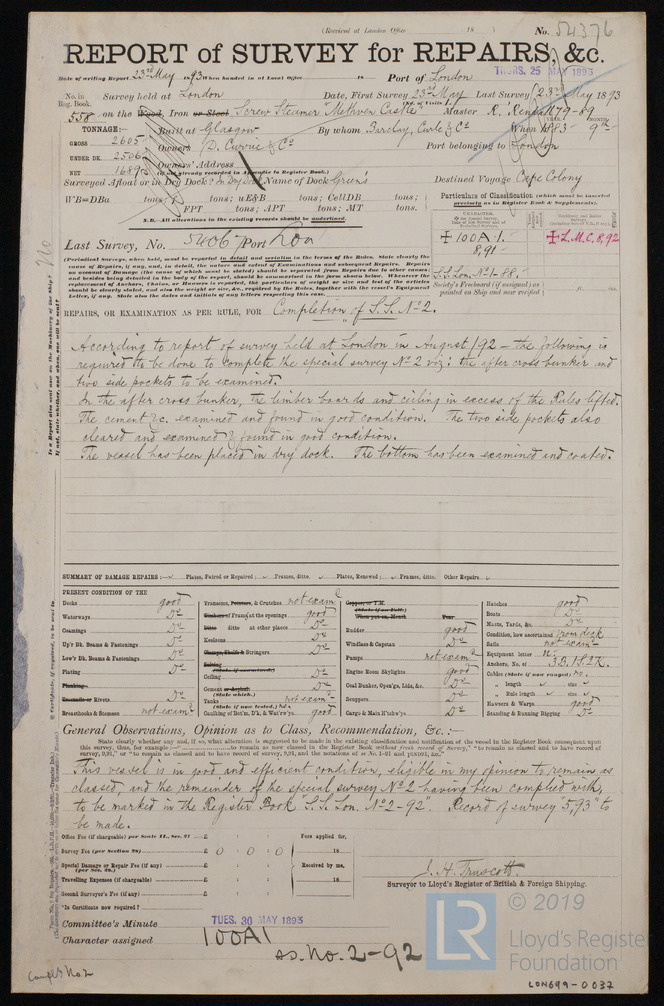 (Received at London Office 18 ) No. 54376
REPORT of SURVEY for REPAIRS, &c.
Date of writing Report 23rd May 1893 When handed in at Local Office 18 Port of London
THURS. 25 MAY 1893
No. in Reg. Book. Survey held at London Date, First Survey 23rd May Last Survey 23rd May 1893
(No. of Visits 1)
558 on the Wood, Iron or Steel Screw Steamer "Methven Castle" Master R. Rendall 79-89
TONNAGE:— Built at Glasgow By whom Barclay, Curle & Co When 1883 MONTH. 9th
GROSS 2605 Owners D. Currie & Co Port belonging to London
UNDER DK. 2506 Owners' Address
NET 1689 (if not already recorded in Appendix to Register Book.)
Surveyed Afloat or in Dry Dock? In Dry Dock Name of Dock Green's Destined Voyage Cape Colony
WB=DBa tons; f tons; uE&B tons; CellDB tons;
FPT tons; APT tons; MT tons.
N.B.—All alterations in the existing records should be underlined.
Particulars of Classification (which must be inserted precisely as in Register Book & Supplements).
✠ 100A1. 8,91
✠ L.M.C. 8,92
S.S. Lon. No 1-88
Society's Freeboard (if assigned) as painted on Ship and now verified ft. in.
Last Survey, No. 5406 Port Lon
(Periodical Surveys, when held, must be reported in detail and seriatim in the terms of the Rules. State clearly the
cause of Repairs, if any, and, in detail, the nature and extent of Examinations and subsequent Repairs. Repairs
on account of Damage (the cause of which must be stated) should be separated from Repairs due to other causes;
and besides being detailed in the body of the report, should be summarised in the form shown below. Whenever the
replacement of Anchors, Chains, or Hawsers is reported, the particulars of weight or size and test of the articles
should be clearly stated, and also the weight or size, &c., required by the Rules, together with the vessel's Equipment
Letter, if any. State also the dates and initials of any letters respecting this case.
REPAIRS, OR EXAMINATION AS PER RULE, FOR Completion of S.S. No 2.
According to report of survey held at London in August /92 – the following is
required to be done to complete the special survey No 2 viz: the after cross bunker and
two side pockets to be examined.
In the after cross bunker, the limber boards and ceiling in excess of the Rules lifted.
The cement &c. examined and found in good condition. The two side pockets also
cleared and examined & found in good condition.
The vessel has been placed in dry dock. The bottom has been examined and coated.
SUMMARY OF DAMAGE REPAIRS:— Plates, Faired or Repaired; Frames, ditto. Plates, Renewed; Frames, ditto. Other Repairs.
PRESENT CONDITION OF THE
Decks good
Waterways Do
Coamings Do
Up'r Dk. Beams & Fastenings Do
Low'r Dk. Beams & Fastenings Do
Plating Do
Planking
Treenails or Rivets Do
Breasthooks & Stemson not exam?
Transoms, Pointers, & Crutches not exam?
Timbers of Frame at the openings good
Ditto ditto at other places Do
Keelsons Do
Clamps, Shelfs & Stringers Do
Salting (State if examined.)
Ceiling Do
Cement or Asphalt (State which.) Do
Tanks (State if now tested.) not exam?
Caulking of Bot'm, D'k, & Wat'rw'ys. good
Copper, or Y.M. (State if on Felt.)
When put on, Month Year
Rudder good
Windlass & Capstan Do
Pumps not exam?
Engine Room Skylights good
Coal Bunker, Open'gs, Lids, &c. Do
Scuppers Do
Cargo & Main H'tchw'ys Do
Hatches good
Boats Do
Masts, Yards, &c. Do
Condition, how ascertained from deck
Sails not exam?
Equipment letter
Anchors, No. of 3B.1S.2K.
Cables (State if now ranged) no
„ length size
„ Rule length size
Hawsers & Warps good
Standing & Running Rigging Do
General Observations, Opinion as to Class, Recommendation, &c.:—
This vessel is in good, and efficient condition, eligible in my opinion to remain as
classed, and the remainder of the special survey No 2 having been complied with,
to be marked in the Register Book "S.S. Lon. No 2-92". Record of survey "5,93" to
be made.
Office Fee (if chargeable) per Scale II., Sec. 27 £ : : Fees applied for,
Survey Fee (per Section 28) £ 0 : 0 : 0 18
Special Damage or Repair Fee (if any) (per Sec. 28.) £ : : Received by me,
Travelling Expenses (if chargeable) £ : : 18
Second Surveyor's Fee (if any) £ : :
*Is Certificate now required?
J. H. Truscott.
Surveyor to Lloyd's Register of British & Foreign Shipping.
Committee's Minute TUES. 30 MAY 1893
Character assigned 100A1
as. No. 2-92
© 2019
LR
Lloyd's Register
Foundation
LON699-0037